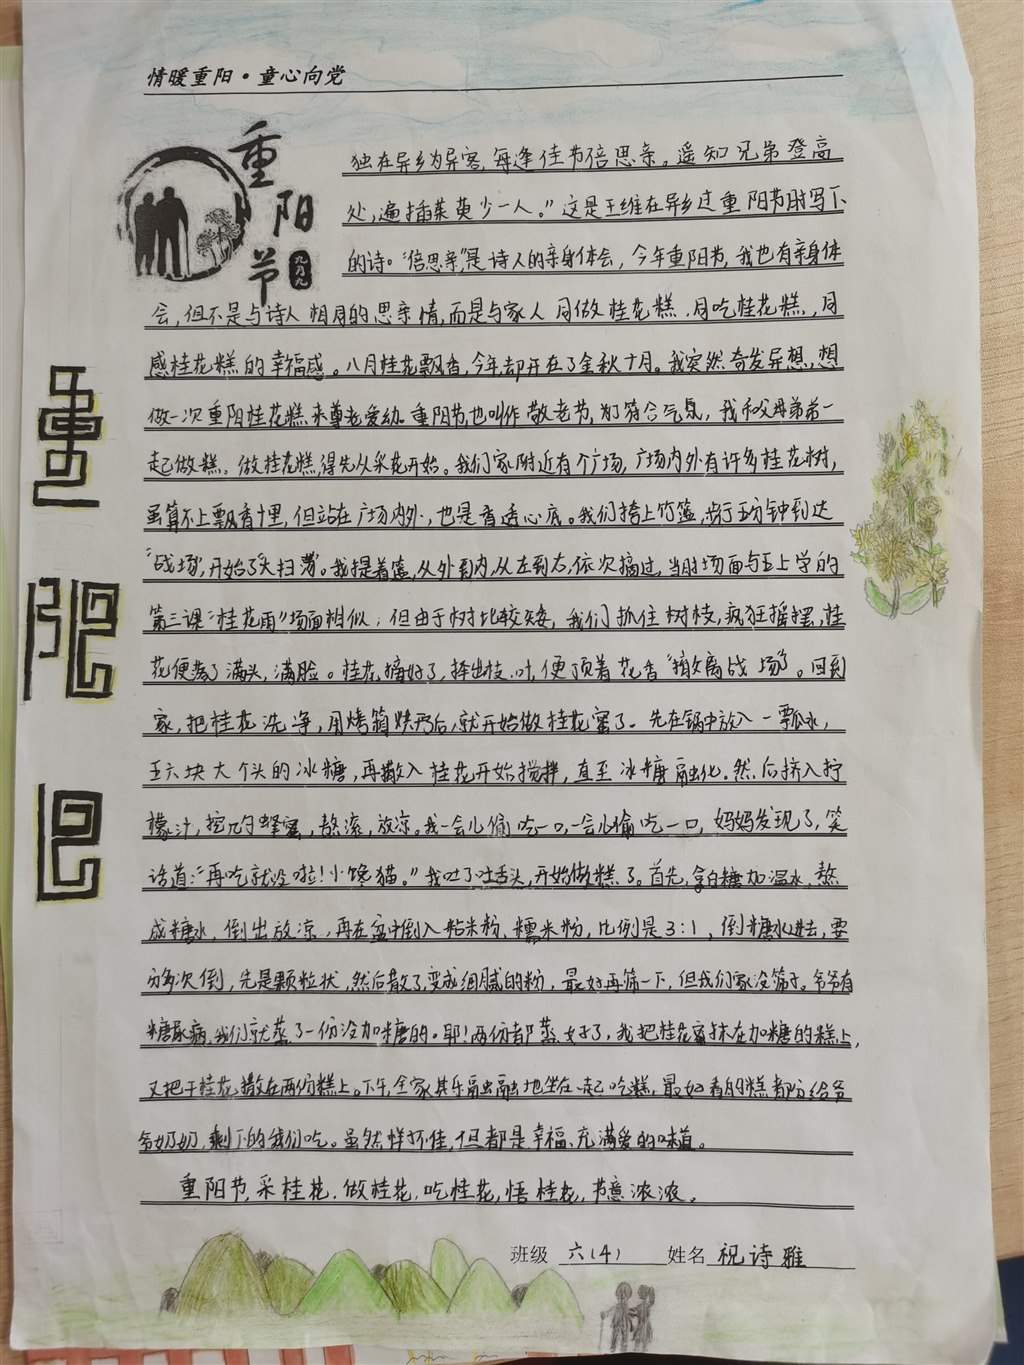 情暖重阳·童心向党
重阳节
九月九
独在异乡为异客，每逢佳节倍思亲。遥知兄弟登高
处，遍插茱萸少一人。”这是王维在异乡过重阳节时写下
的诗。“倍思亲”是诗人的亲身体会，今年重阳节，我也有亲身体
会，但不是与诗人相同的思亲情，而是与家人同做桂花糕，同吃桂花糕，同
感桂花糕的幸福感。八月桂花飘香，今年却开在了金秋十月。我突然奇发异想，想
做一次重阳桂花糕来尊老爱幼。重阳节，也叫作敬老节，为了符合气氛，我和父母弟弟一
起做糕。做桂花糕，得先从采花开始。我们家附近有个广场，广场内外有许多桂花树，
虽算不上飘香十里，但站在广场内外，也是香透心底。我们挎上竹篮，步行五分钟到达
“战场”，开始了“大扫荡”。我提着篮，从外到内，从左到右，依次摘过，当时场面与五上学的
第三课“桂花雨”场面相似；但由于树比较矮，我们抓住树枝，疯狂摇摆，桂
花便落了满头，满脸。桂花摘好了，择出枝、叶，便顶着花香“撤离战场”。回到
家，把桂花洗净，用烤箱烘干后，就开始做桂花蜜了。先在锅中放入一瓢水，
五六块大个头的冰糖，再撒入桂花开始搅拌，直至冰糖融化。然后挤入柠
檬汁，挖几勺蜂蜜，熬滚，放凉。我一会儿偷吃一口，一会儿偷吃一口，妈妈发现了，笑
话道：“再吃就没啦！小馋猫。”我吐了吐舌头，开始做糕了。首先，拿白糖加温水，熬
成糖水，倒出放凉，再在盆中倒入粘米粉、糯米粉，比例是3:1，倒糖水进去，要
分多次倒，先是颗粒状，然后散了，变成细腻的粉，最好再筛一下，但我们家没筛子。爷爷有
糖尿病，我们就蒸了一份没加糖的。耶！两份都蒸好了，我把桂花蜜抹在加糖的糕上，
又把干桂花撒在两份糕上。下午，全家其乐融融地坐在一起吃糕，最好看的糕都分给爷
爷奶奶，剩下的我们吃。虽然样不佳，但都是幸福、充满爱的味道。
重阳节，采桂花，做桂花，吃桂花，悟桂花，节意浓浓。
班级 六(4) 姓名 祝诗雅
重
阳